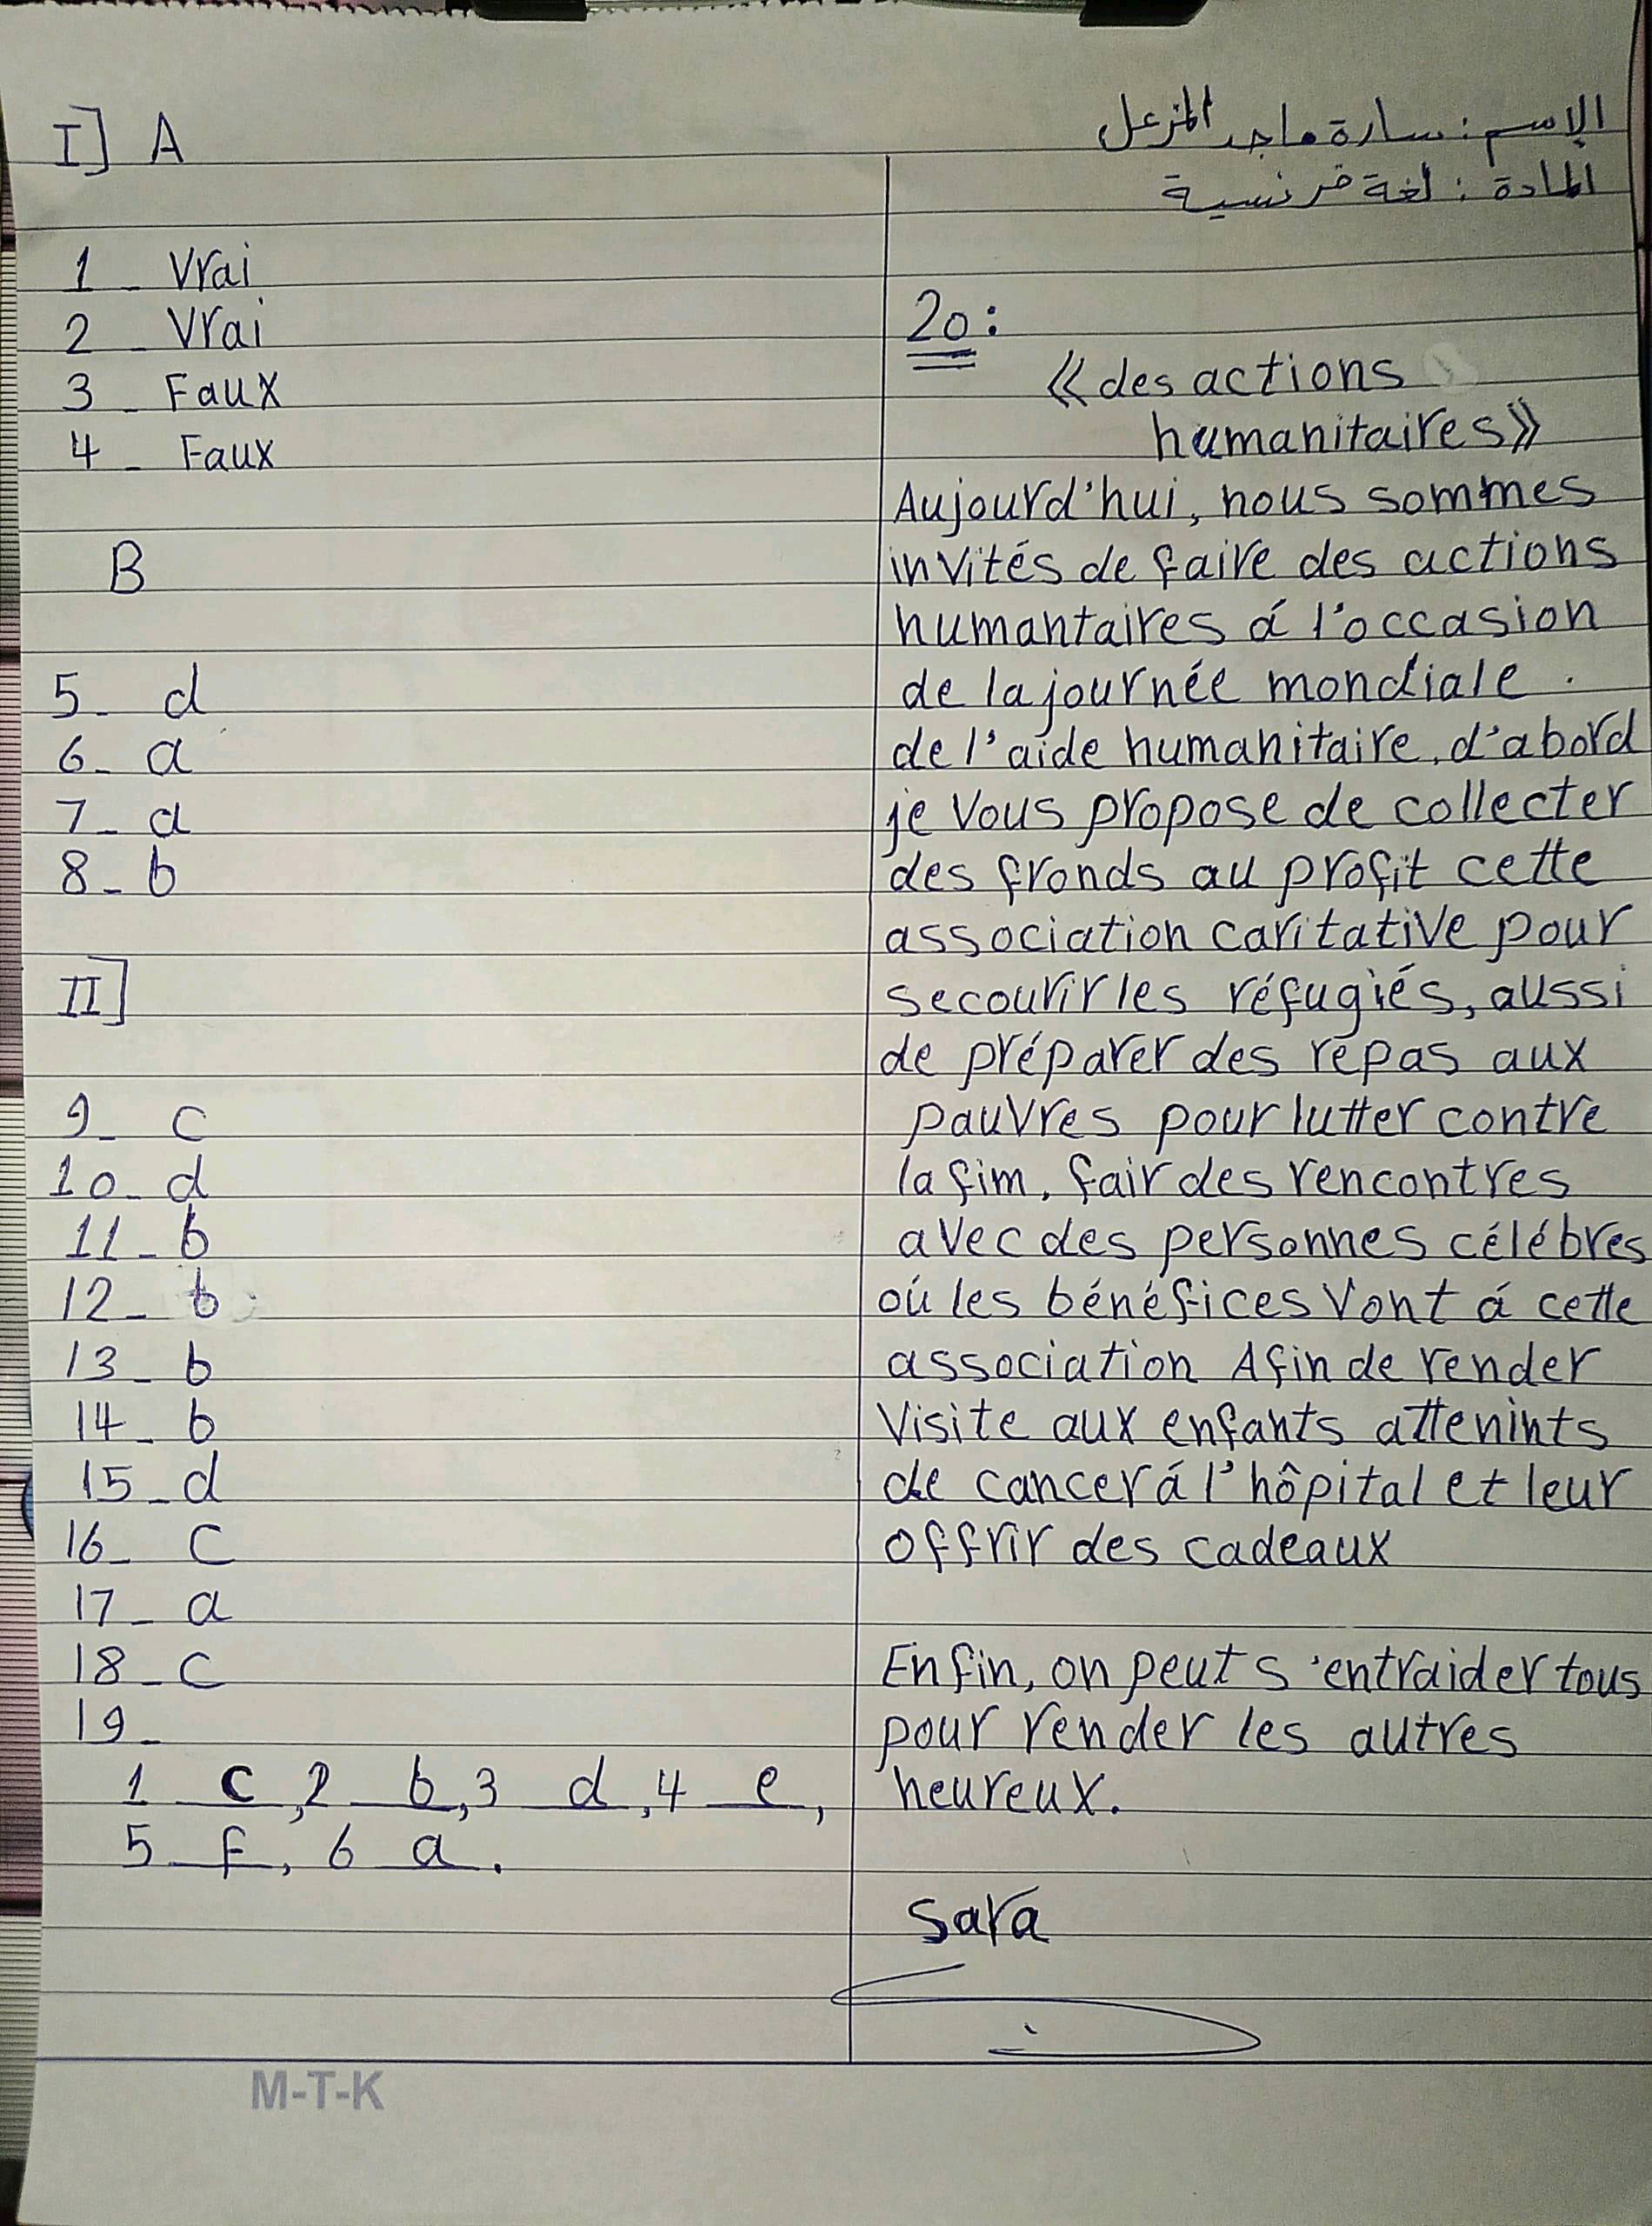 الإسم: سارة ماجد المزعل
المادة: لغة فرنسية
I] A
1 _ Vrai
2 _ Vrai
3 _ Faux
4 _ Faux
B
5_ d
6_ a
7_ a
8_ b
II]
9_ c
10_ d
11_ b
12_ b
13_ b
14_ b
15_ d
16_ c
17_ a
18_ c
19_
1 c, 2 b, 3 d, 4 e,
5 f, 6 a.
20:
«des actions
humanitaires»
Aujourd'hui, nous sommes
invités de faire des actions
humantaires á l'occasion
de la journée mondiale
de l'aide humanitaire, d'abord
je vous propose de collecter
des fronds au profit cette
association caritative pour
secourir les réfugiés, aussi
de préparer des repas aux
pauvres pour lutter contre
la fim, fair des rencontres
avec des personnes célébres
oú les bénéfices vont á cette
association Afin de render
visite aux enfants attenints
de cancer á l'hôpital et leur
offrir des cadeaux
Enfin, on peut s'entraider tous
pour render les autres
heureux.
Sara
M-T-K